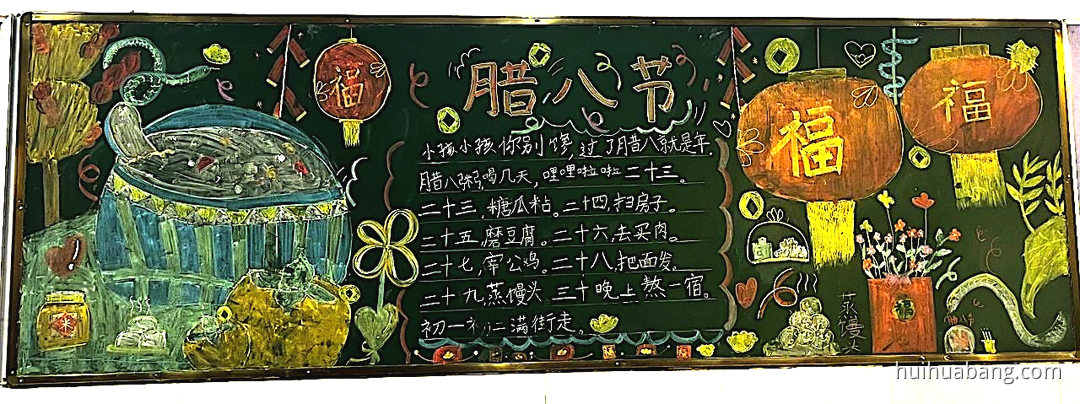 腊八节
福
小孩小孩你别馋,过了腊八就是年.
腊八粥,喝几天,哩哩啦啦二十三。
二十三,糖瓜粘。二十四,扫房子。
二十五,磨豆腐。二十六,去买肉。
二十七,宰公鸡。二十八,把面发。
二十九,蒸馒头 三十晚上熬一宿。
初一初二满街走。
福
福
福
蒸馒头
huihuabang.com